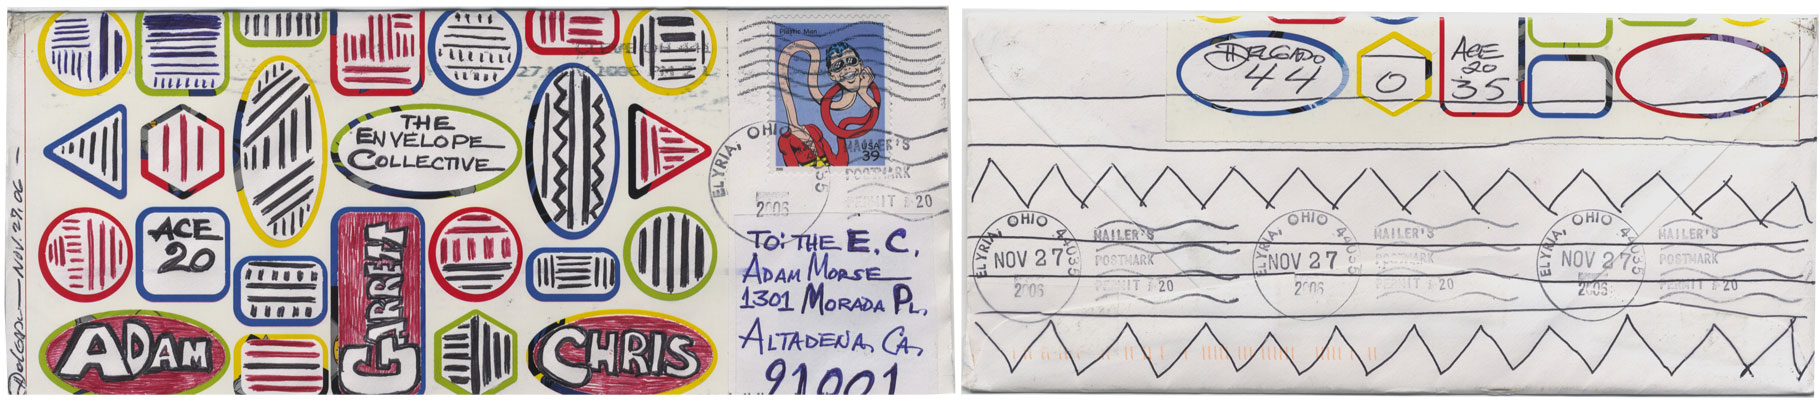 THE
ENVELOPE
COLLECTIVE
ACE
20
ADAM
GARRETT
CHRIS
NOV. 27. 06
Plastic Man
USA
39
ELYRIA, OHIO
2006
MAILER'S
POSTMARK
PERMIT # 20
TO: THE E. C.
ADAM MORSE
1301 MORADA PL.
ALTADENA, CA,
91001
DELGADO
44
0
ACE
20
35
ELYRIA, OHIO 44035
NOV 27
2006
MAILER'S
POSTMARK
PERMIT # 20
ELYRIA, OHIO 44035
NOV 27
2006
MAILER'S
POSTMARK
PERMIT # 20
ELYRIA, OHIO 44035
NOV 27
2006
MAILER'S
POSTMARK
PERMIT # 20